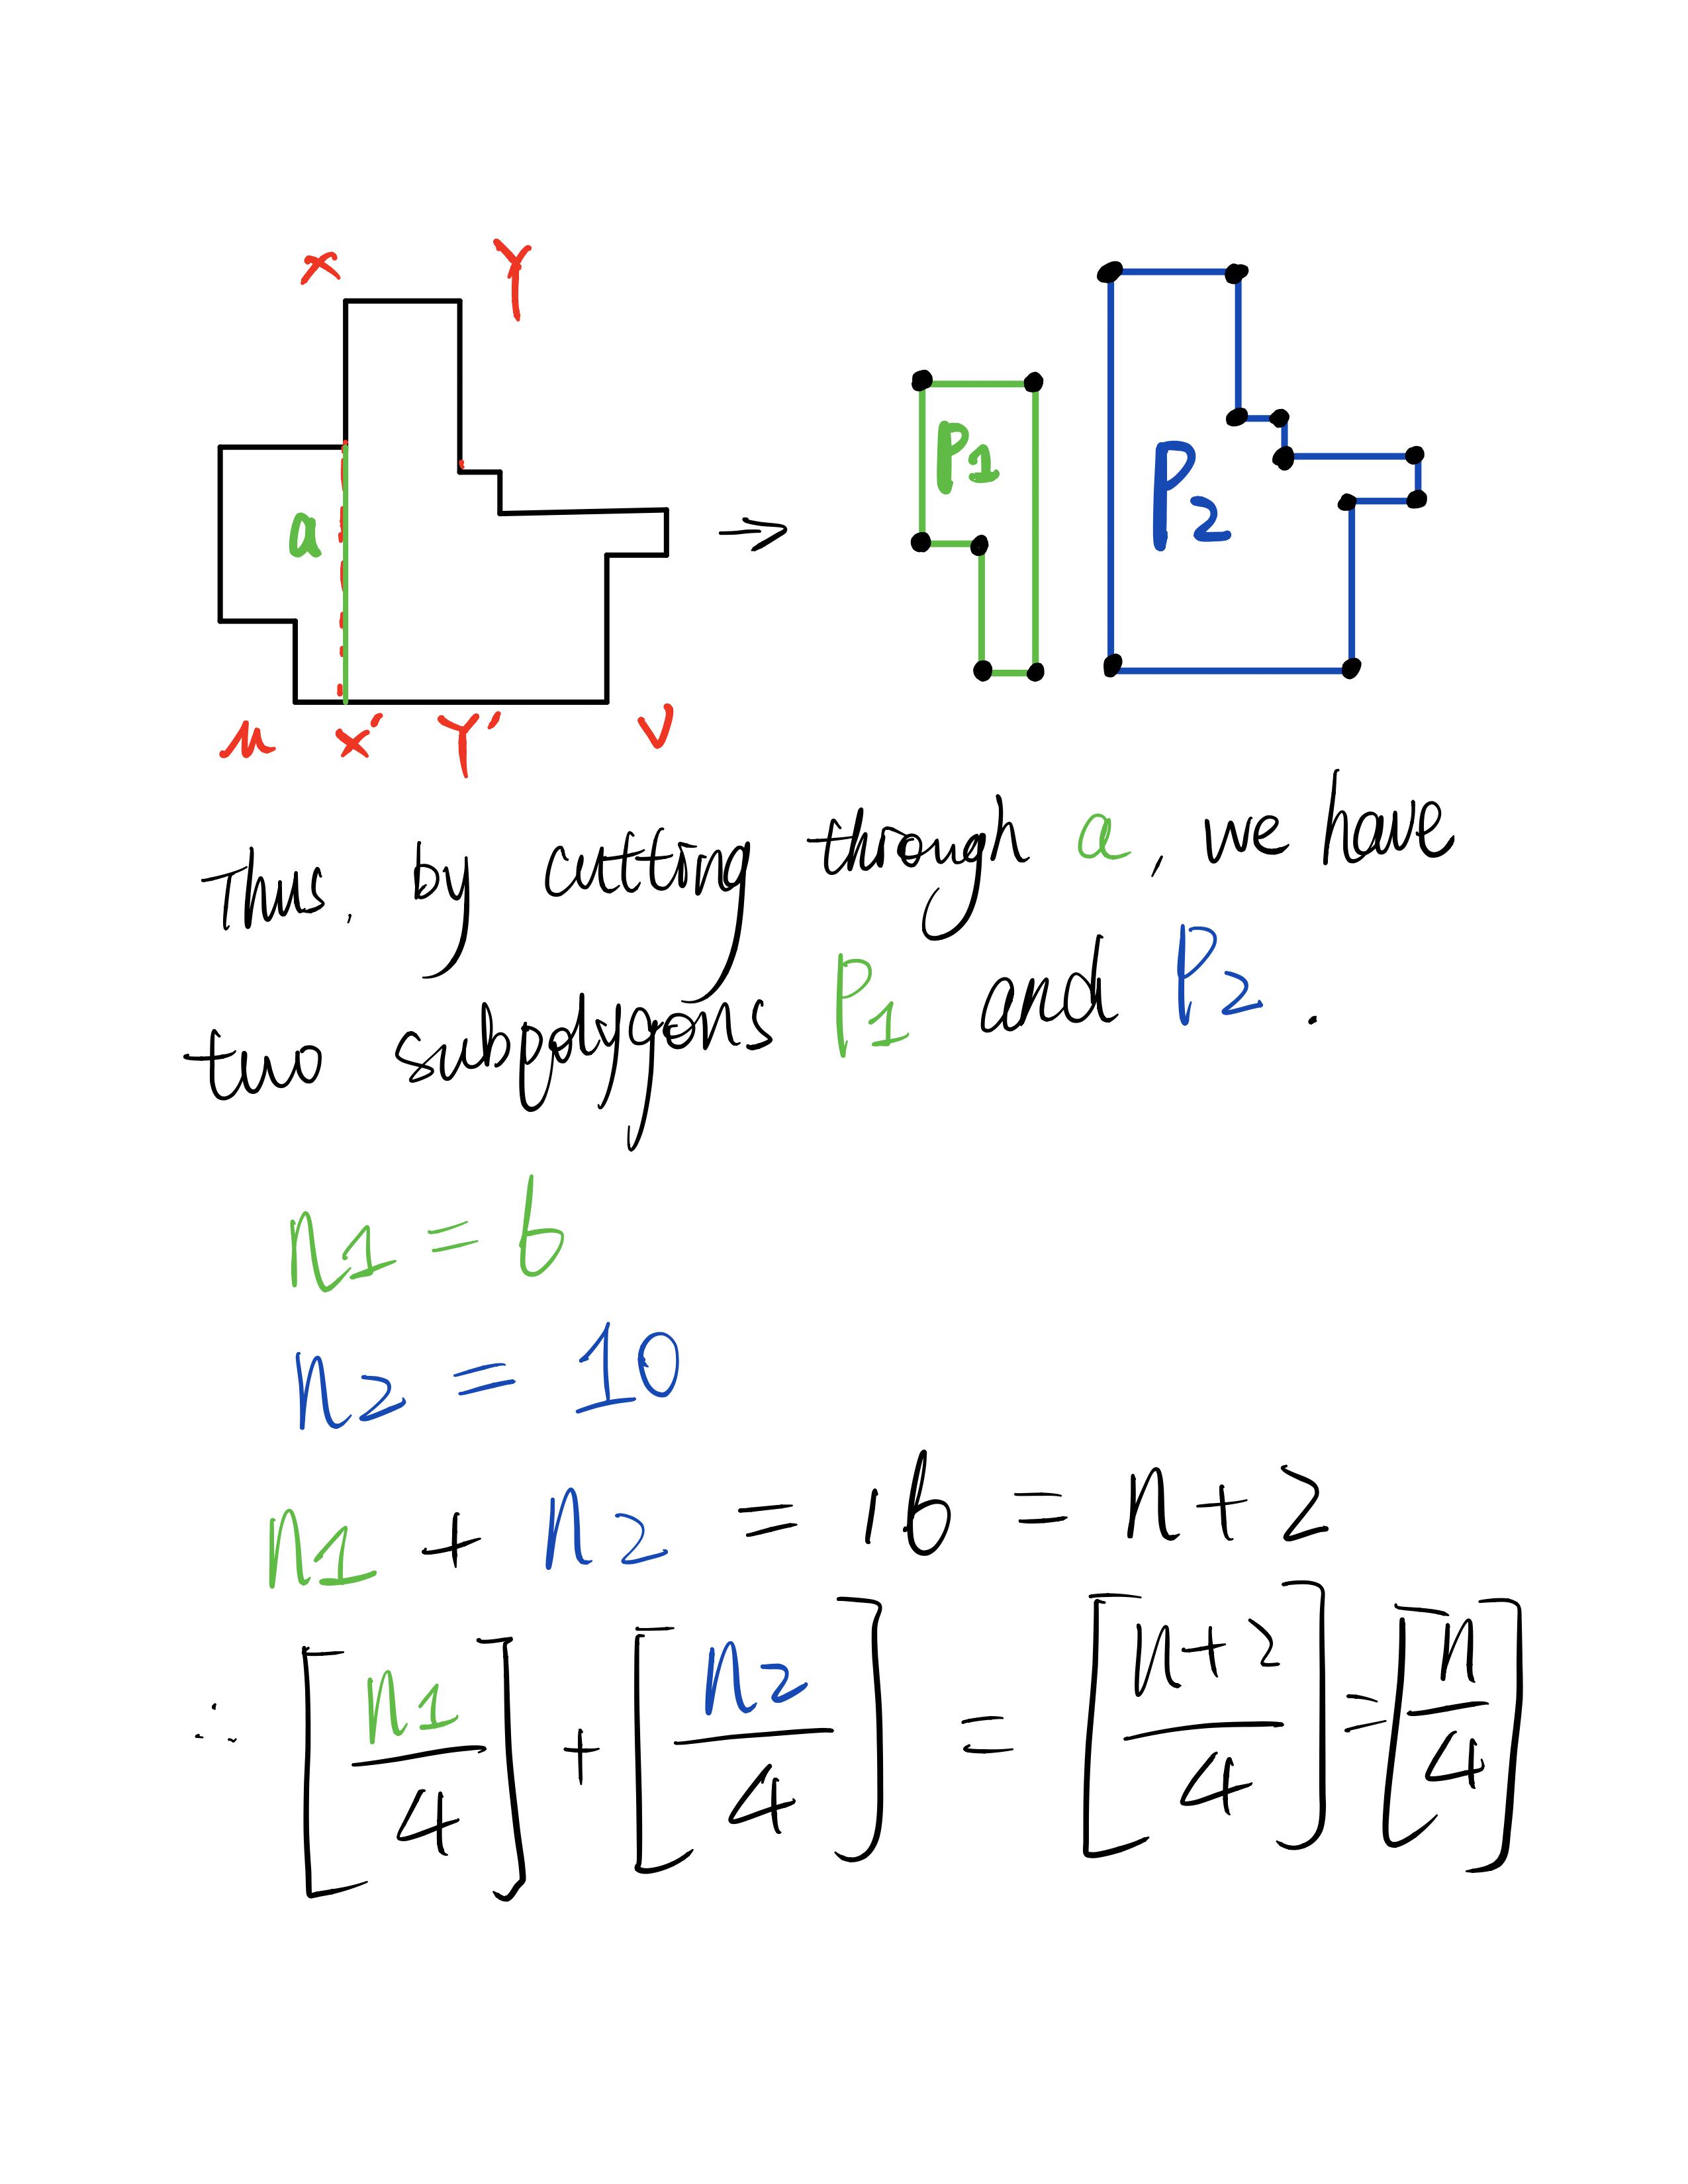 X Y
a
P1 P2
⇒
u X' Y' V
Thus, by cutting through a, we have
two subpolygons P1 and P2.
n1 = 6
n2 = 10
n1 + n2 = 16 = n+2
∴ [n1/4] + [n2/4] = [n+2/4] = [n/4]